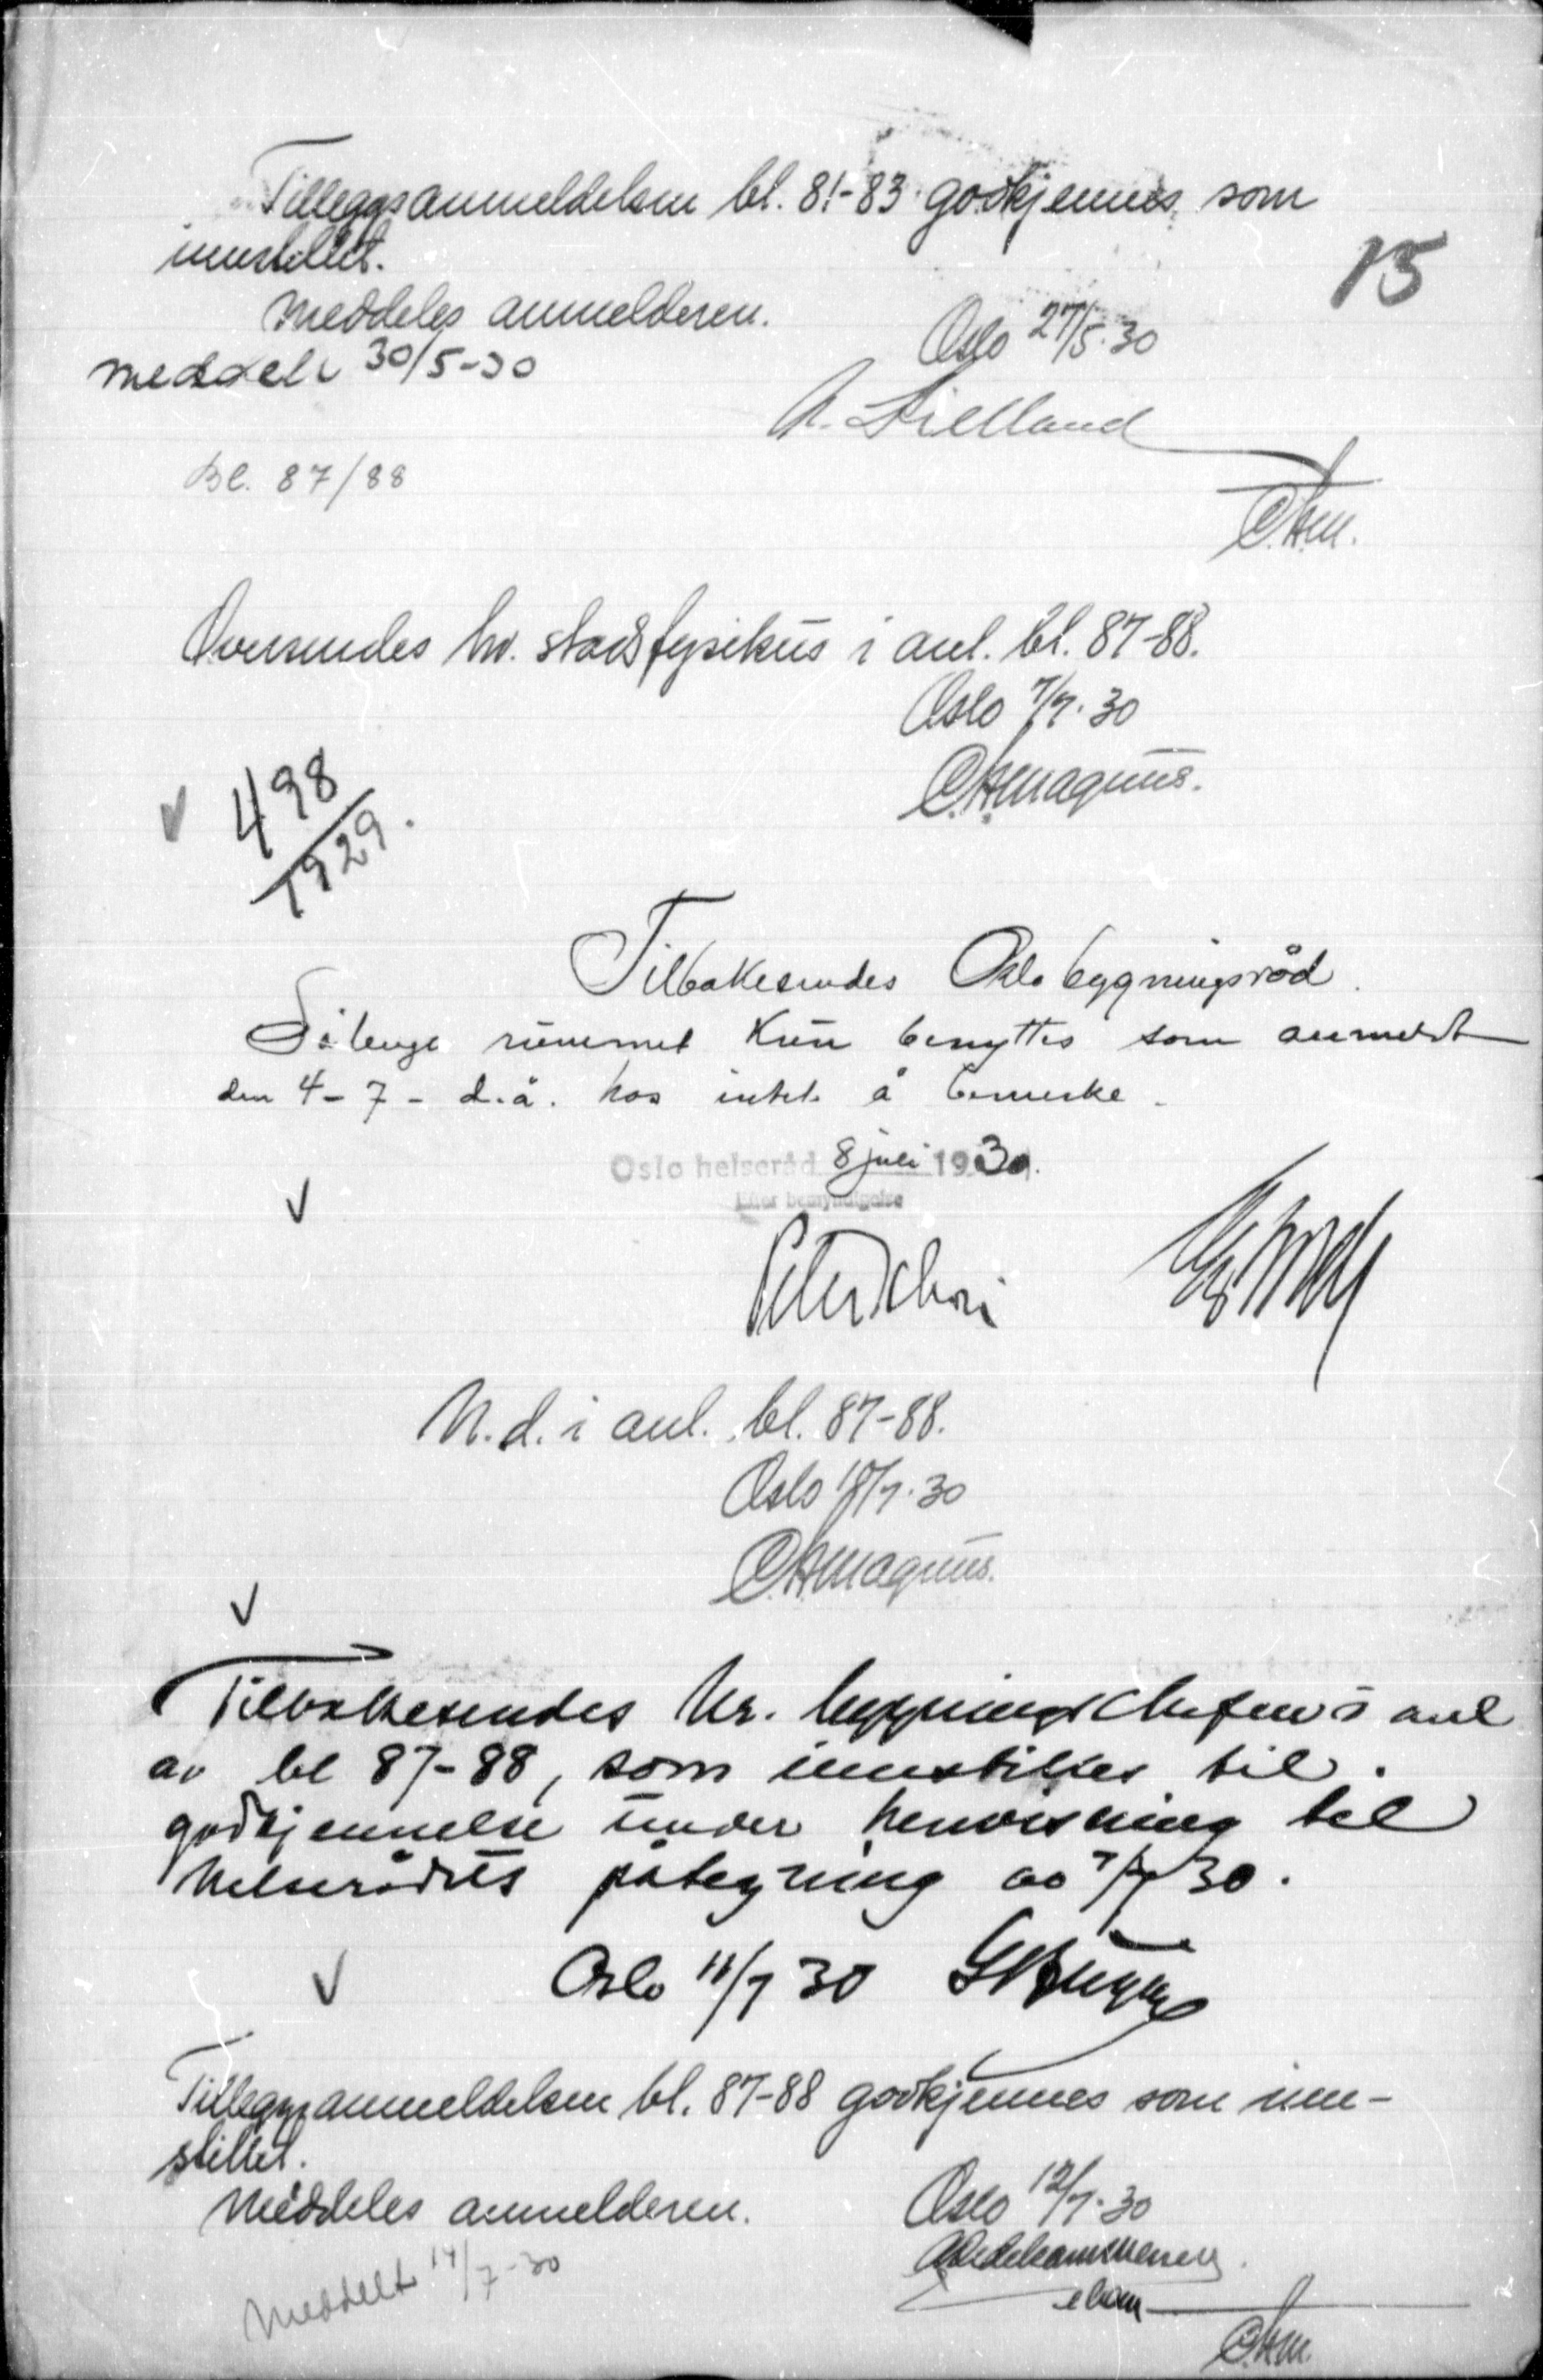 Tilleggsanmeldelsen bl. 81-83 godkjennes som
innstillet.
15
Meddeles anmelderen.
Oslo 27/5.30
Meddelt 30/5-30
A. Kielland
Bl. 87/88
C.H.M.
Oversendes hr. stadsfysikus i anl. bl. 87-88.
Oslo 7/7.30
C.H.Magnus.
498
1929.
Tilbakesendes Oslo bygningsråd.
Sålenge rummet kun benyttes som anmeldt
den 4-7- d.å. has intet å bemerke.
Oslo helseråd 8 juli 1930.
Efter bemyndigelse
N.d. i anl. bl. 87-88.
Oslo 10/7.30
C.H.Magnus.
Tilbakesendes hr. bygningschefen i anl
av bl 87-88, som innstilles til
godkjennelse under henvisning til
helserådets påtegning av 7/7 30.
Oslo 11/7 30
Tilleggsanmeldelsen bl. 87-88 godkjennes som inn-
stillet.
Meddeles anmelderen.
Oslo 12/7.30
Meddelt 14/7-30
C.H.M.